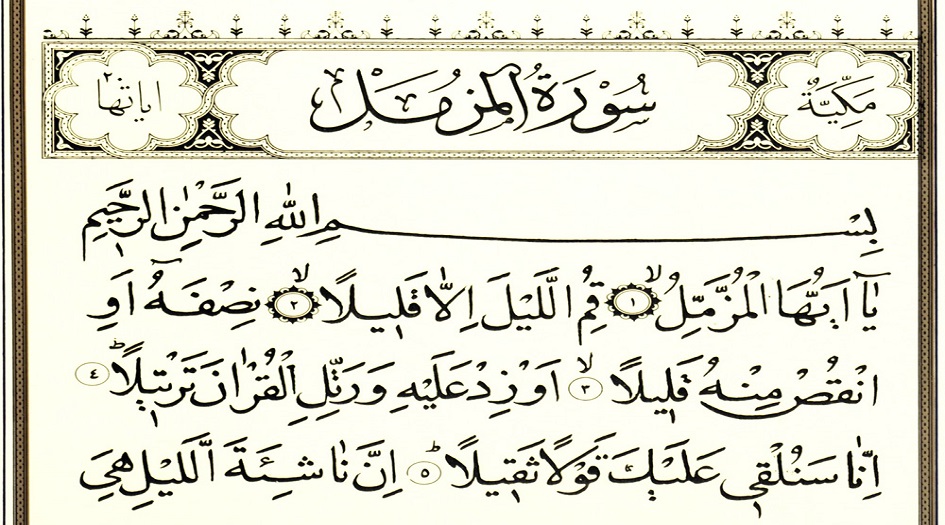 مَكِّيَّةٌ سُورَةُ الْمُزَّمِّلْ اٰيَاتُهَا ٢٠
بِسْمِ اللّٰهِ الرَّحْمٰنِ الرَّحٖيمِ
يَٓا اَيُّهَا الْمُزَّمِّلُۙ ١ قُمِ الَّيْلَ اِلَّا قَلٖيلًاۙ ٢ نِصْفَهُٓ اَوِ
انْقُصْ مِنْهُ قَلٖيلًاۙ ٣ اَوْ زِدْ عَلَيْهِ وَرَتِّلِ الْقُرْاٰنَ تَرْتٖيلًاؕ ٤
اِنَّا سَنُلْقٖي عَلَيْكَ قَوْلًا ثَقٖيلًاؕ ٥ اِنَّ نَاشِئَةَ الَّيْلِ هِيَ